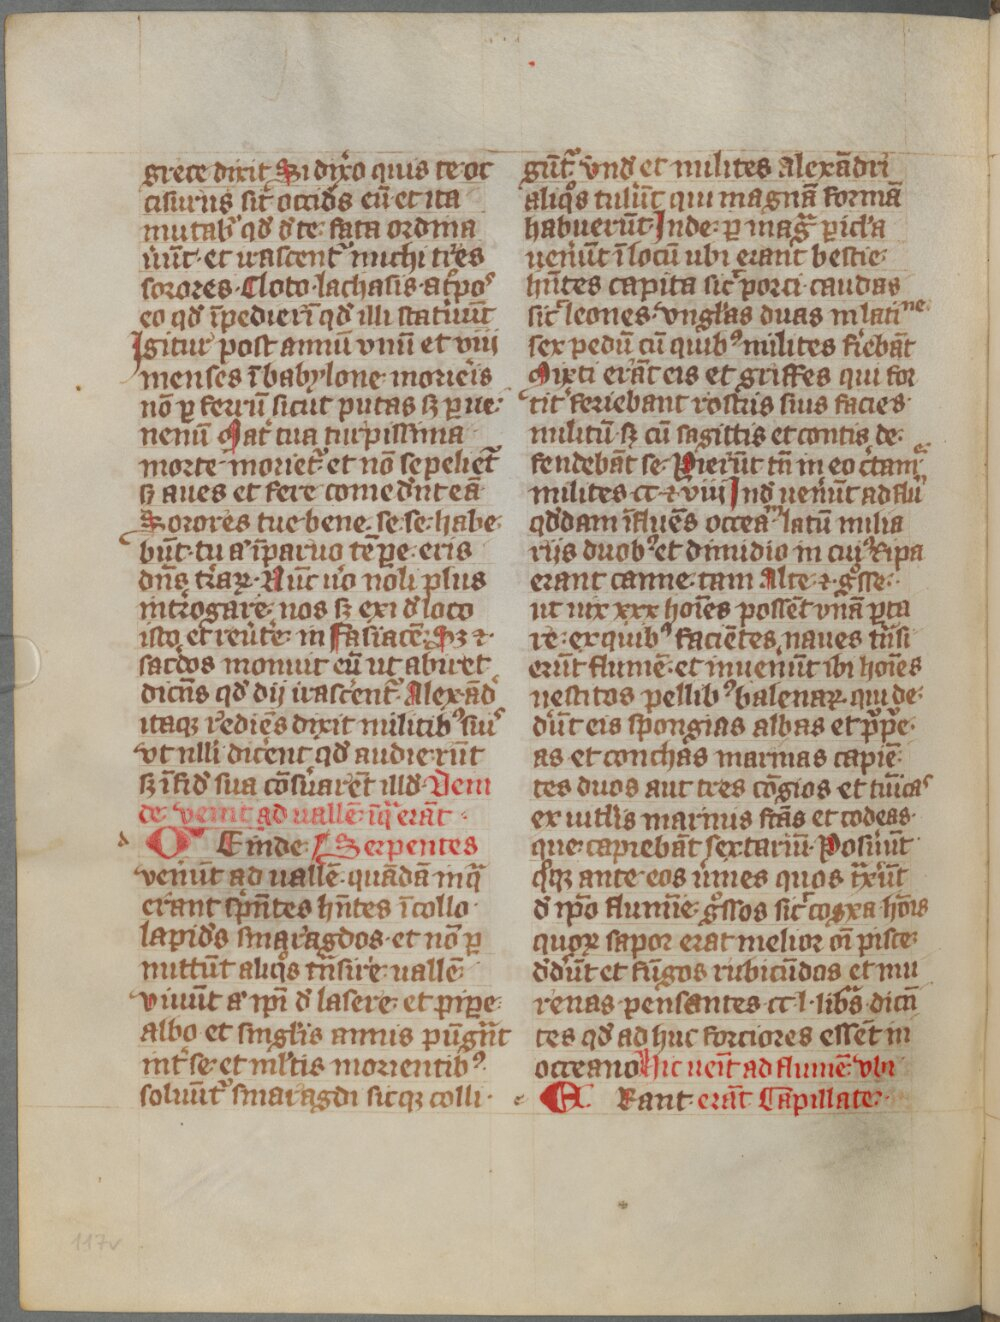 grece dixit Si dix̓o quis te oc
cisurus sit̓ occid̓s eū et ita
mutab̓ qd̓ d̓ te fata ordina
u̓unt et irascent̓ michi tres
sorores Cloto lachasis at̓pos
eo qd̓ īpedierī qd̓ illi statuūt
Igitur post annū vnū et viii
menses ī babylone morieris
nō ꝑ ferrū sicut putas sꝫ ꝑ ue
nenū Mat̓ tua turpissima
morte moriet̓ et nō sepeliet̓
sꝫ aues et fere comed̓nt eā
Sorores tue bene se se habe
būt tu a̓ ī paruo tēpe eris
dn̄s t̓raꝝ Nūc u̓o noli plus
int̓rogare nos sꝫ exi d̓ loco
isto et reu̓te in fasiacē Sꝫ ⁊
sac̓dos monuit eū ut abiret
dicēs qd̓ dij irascent̓ Alexād̓
itaqꝫ rediēs dixit militibꝰ suis
vt nlli dicerent qd̓ audierūt
sꝫ ī fid̓ sua cōsu̓arēt illd̓ Dein
de venit ad uallē ī q̄ erāt
d Deinde Serpentes
venūt ad uallē quādā in q̄
erant s̓pn̄tes hn̄tes ī collo
lapid̓s smaragdos et nō ꝑ
mittūt aliq̓s tn̄sire uallē
viuūt a̓ ip̄i d̓ lasere et pipe
albo et singl̓is annis pūgn̄t
int̓ se et ml̓tis morientibꝰ
soluūt̓ smaragdi sicqꝫ colli
gūt̓ vnd̓ et milites Alexādri
aliq̓s tulūt qui magnā formā
habuerūt Inde ꝑ mag̓ ꝑicl̓a
uenūt ī locū ubi erant bestie
hn̄tes capita sic̓ porci caudas
sic̓ leones vngl̓as duas in latine
sex pedū cū quibꝰ milites fiebāt
Mixti erāt eis et griffes qui for
tit̓ feriebant rostris suis facies
militū sꝫ cū sagittis et contis de
fendebāt se Pierūt tn̄ in eo c̓tam̄
milites cc ⁊ viii Ind̓ uenūt ad flu
qd̓dam ī fluēs occeam̄ latū milia
rijs duobꝰ et dimidio in cuiꝰ Ripa
erant canne tam Alte ⁊ g̓sse
ut uix xxx hoīes possēt vnā ꝑta
re ex quibꝰ faciētes naues tn̄si
erūt flumē et inuenūt ibi hoīes
uestitos pellibꝰ balenaꝝ qui de
d̓ūt eis spongias albas et p̓pe
as et conchas marinas capiē
tes duos aut tres cōgios et tuīcas
ex uitl̓is marinis fc̄as et codeas
que capiebāt sextariū Posuūt
q̓qꝫ ante eos u̓mes quos t̄xūt
d̓ ip̄o flumīe g̓ssos sic̓ coxa hoīs
quoꝝ sapor erat melior oī pisce
d̓dūt et fūgos rubicūdos et mu
renas pensantes cc l libr̄s dicn̄
tes qd̓ ad huc forciores essēt in
occeano Hic uēit ad flumē vbi
e ERant erāt Capillate
117v